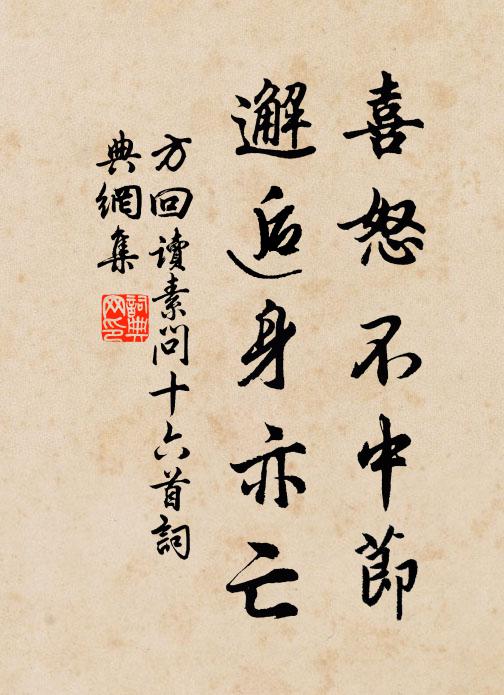 喜怒不中節
邂逅身亦亡
方回讀素問十六首詞
典網集
詞典網印